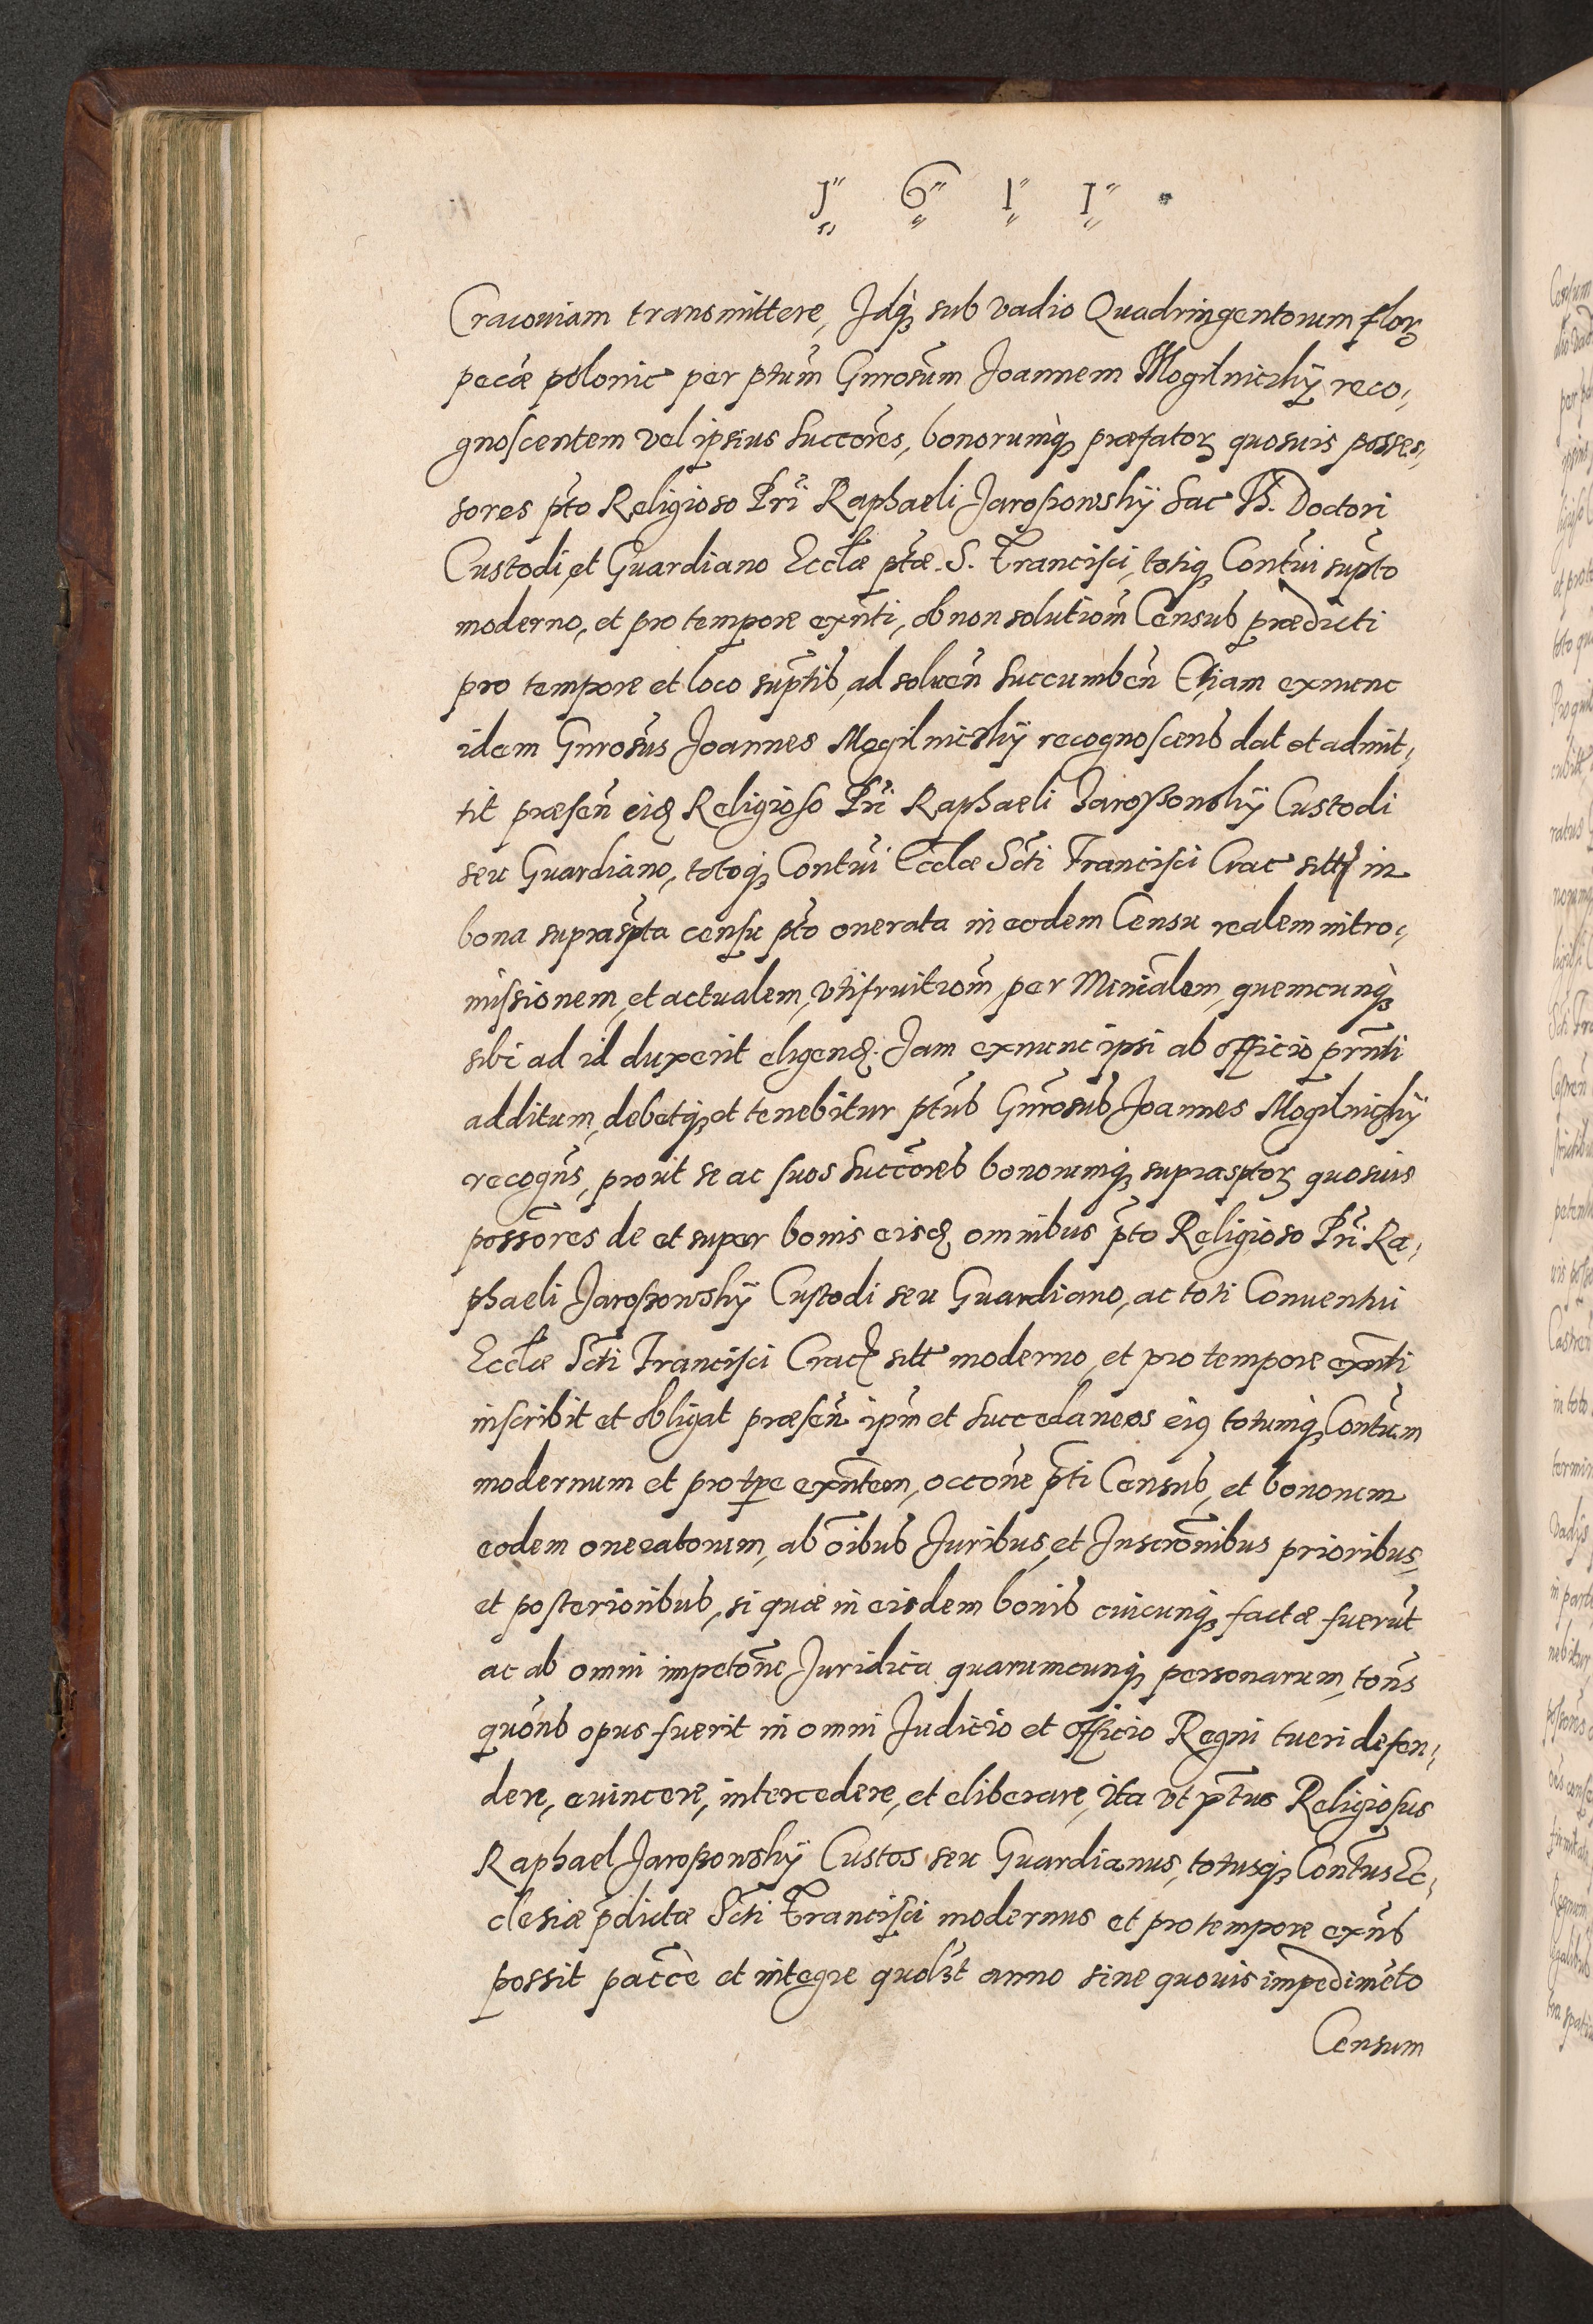 1611
Cracouiam transmittere, Jdq́ꝫ sub vadio Quadringentorum florꝫ
pecúæ polonic per ptum̃ Gnrosum̃ Joannem Mogilniczkÿ reco,
gnoscentem vel ipsius succõres, bonorumq́ꝫ præfatorꝫ quosuis posses,
sores pto Religioso Pri Raphaeli Jaroszowskÿ Sac Th. Doctori
Custodi, et Guardiano Ecclæ ptæ. S. Francisci, totiqꝫ Contui supto
moderno, et pro tempore exñti, ob non solutiom̃ Census prædicti
pro tempore et loco suptis, ad soluen̄ succumben̄ Etiam exnunc
idem Gnrosus Joannes Mogilniczkÿ recognoscens dat et admit,
tit præsen̄ eidꝫ Religioso Pri Raphaeli Jaroszowskÿ Custodi
seu Guardiano, totoqꝫ Contui Ecclæ Scti Francisci Crac sitt in
bona supraspta censu pto onerata in eodem Censu realem intro,
missionem, et actualem, vtifruitiom̃, per Minialem, quemcunq́ꝫ
sibi ad id duxerit eligendꝫ. Jam exnunc ipsi ab officio prñti
additum, debetqꝫ et tenebitur ptus Gnrosus Joannes Mogilniczkÿ
recogns, prout se ac suos succõres bonorumqꝫ suprasptorꝫ quosuis
possores de et super bonis eisdꝫ omnibus pto Religioso Pri Ra,
phaeli Jaroszowskÿ Custodi seu Guardiano, ac toti Conuentui
Ecclæ Scti Francisci Crac sitt moderno, et pro tempore exñti
inscribit et obligat præsen̄ ipm̃ et succedaneos eiꝰ totumq́ꝫ Contum
modernum et pro tpe exñtem, occõne pti Census, et bonorum
eodem oneratorum, ab õibus Juribus, et Inscrõnibus prioribus,
et posterioribus, si quæ in eisdem bonis cuicunqꝫ factæ fuerũt
ac ab omni impetõne Juridica quarumcunqꝫ personarum, tõns
quõns opus fuerit in omni Judicio et officio Regni tueri defen,
dere, euincere, intercedere, et eliberare, ita vt ptus Religiosus
Raphael Jaroszowskÿ Custos seu Guardianus, totusqꝫ Contus Ec,
clesiæ pdictæ Scti Francisci modernus et pro tempore exñs
possit paccè et integre quolꝫt anno sine quouis impedimẽto
Censum